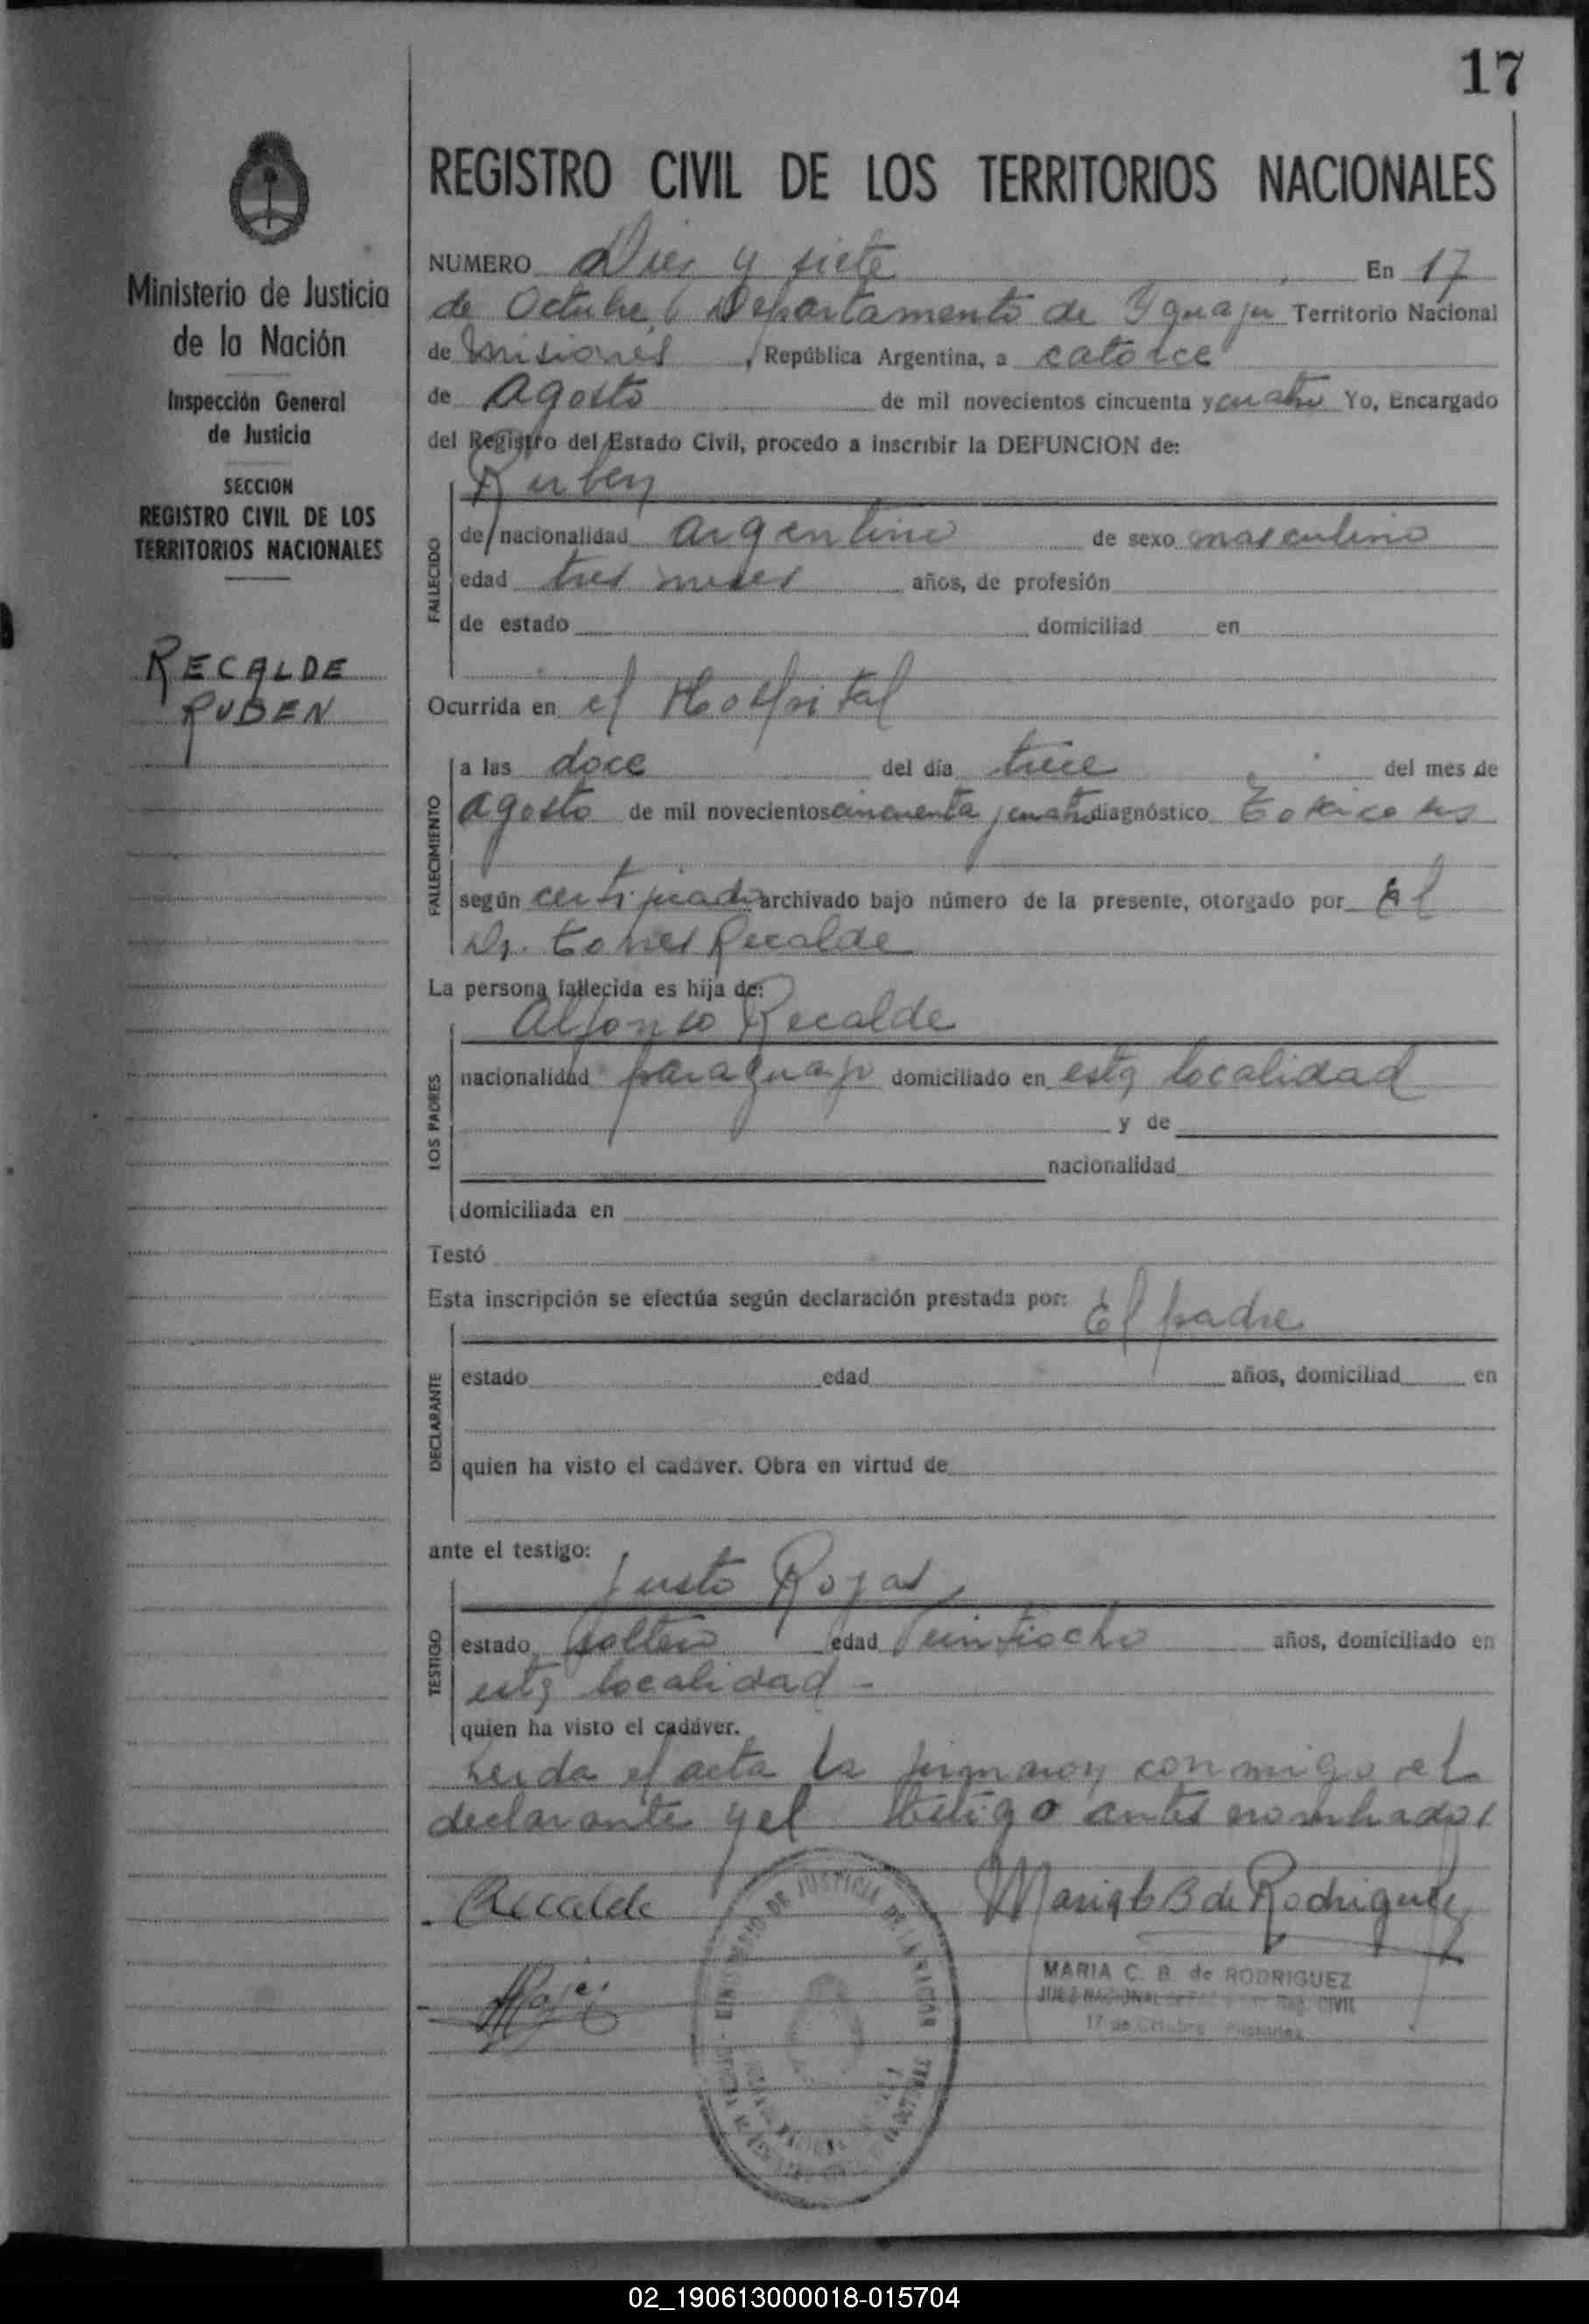 17
REGISTRO CIVIL DE LOS TERRITORIOS NACIONALES
Ministerio de Justicia
de la Nación
Inspección General
de Justicia
SECCION
REGISTRO CIVIL DE LOS
TERRITORIOS NACIONALES
RECALDE
RUBEN
NUMERO Diez y siete En 17
de Octubre, Departamento de Yguazú Territorio Nacional
de Misiones, República Argentina, a catorce
de Agosto de mil novecientos cincuenta y cuatro Yo, Encargado
del Registro del Estado Civil, procedo a inscribir la DEFUNCION de:
Ruben
FALLECIDO
de nacionalidad argentino de sexo masculino
edad tres meses años, de profesión
de estado domiciliad en
Ocurrida en el Hospital
FALLECIMIENTO
a las doce del día trece del mes de
Agosto de mil novecientos cincuenta y cuatro diagnóstico
según certificado archivado bajo número de la presente, otorgado por el
Dr. Torres Recalde
La persona fallecida es hija de:
LOS PADRES
Alfonso Recalde
nacionalidad paraguayo domiciliado en esta localidad
y de
nacionalidad
domiciliada en
Testó
Esta inscripción se efectúa según declaración prestada por: El padre
DECLARANTE
estado edad años, domiciliad en
quien ha visto el cadáver. Obra en virtud de
ante el testigo:
Justo Rojas
TESTIGO
estado soltero edad veintiocho años, domiciliado en
esta localidad -
quien ha visto el cadáver.
Leida el acta la firmaron conmigo el
declarante y el testigo antes nombrados
Recalde
Maria C B de Rodriguez
MARIA C. B. de RODRIGUEZ
JUEZ NACIONAL DE PAZ REG. CIVIL
17 de Octubre Misiones
MINISTERIO DE JUSTICIA DE LA NACION
02_190613000018-015704